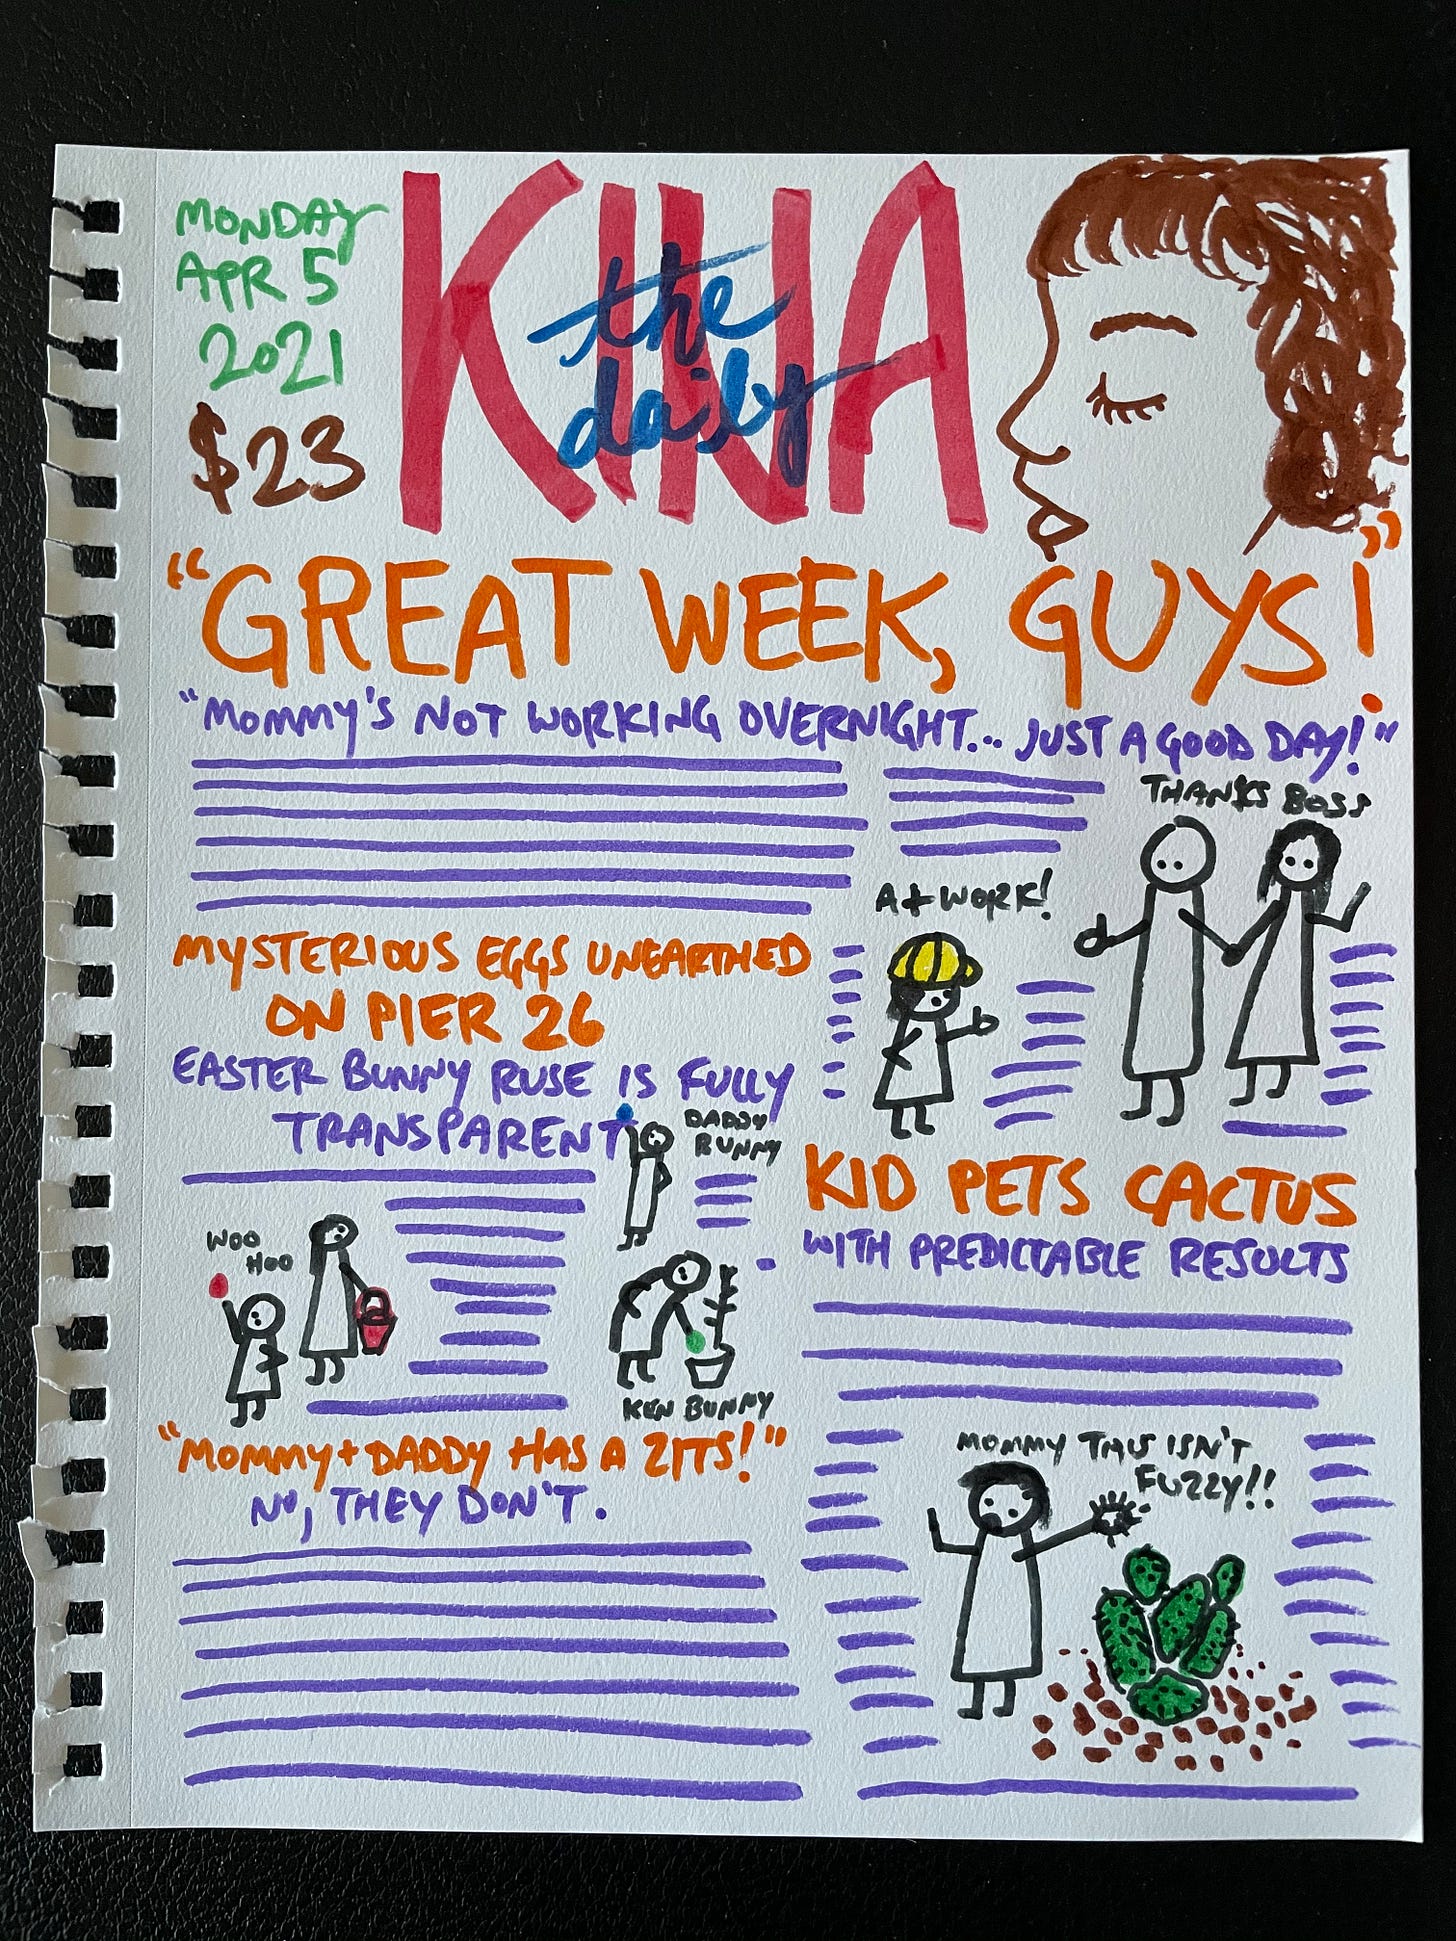 MONDAY
APR 5
2021
$23
KINA
the
daily
"GREAT WEEK, GUYS!"
"MOMMY'S NOT WORKING OVERNIGHT... JUST A GOOD DAY!"
THANKS BOSS
At WORK!
MYSTERIOUS EGGS UNEARTHED
ON PIER 26
EASTER BUNNY RUSE IS FULLY
TRANSPARENT
DADDY
BUNNY
WOO
HOO
KEN BUNNY
KID PETS CACTUS
WITH PREDICTABLE RESULTS
MOMMY THIS ISN'T
FUZZY!!
"MOMMY + DADDY HAS A ZITS!"
NO, THEY DON'T.